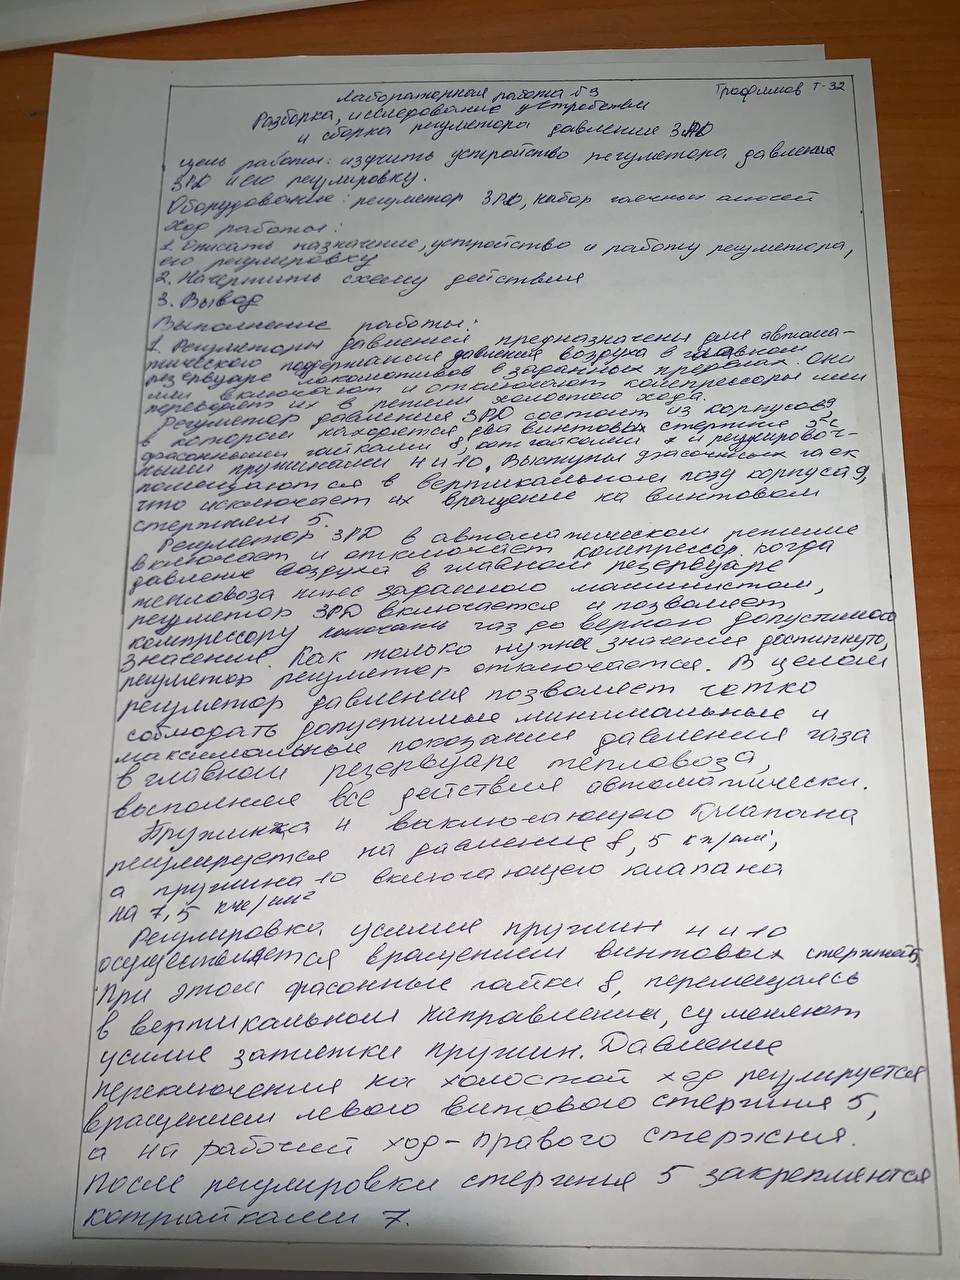 Лабораторная работа №3
Трофимов Т-32
Разборка, исследование устройством
и сборка регулятора давления ЗРД
Цель работы: изучить устройство регулятора давления
ЗРД и его регулировку.
Оборудование: регулятор ЗРД, набор гаечных ключей
Ход работы:
1. Описать назначение, устройство и работу регулятора,
его регулировку
2. Начертить схему действия
3. Вывод
Выполнение работы:
1. Регуляторы давлений предназначены для автома-
тического поддержания давления воздуха в главном
резервуаре локомотивов в заданных пределах. Они
или включают и отключают компрессоры или
переводят их в режим холостого хода.
Регулятор давления ЗРД состоит из корпусов 9,
в котором находятся два винтовых стержня 5 с
фасонными гайками 8, контгайками 7 и регулировоч-
ными пружинами 4 и 10. Выступы фасонных гаек
помещаются в вертикальном пазу корпуса 9,
что исключает их вращение на винтовом
стержнем 5.
Регулятор ЗРД в автоматическом режиме
включает и отключает компрессор. Когда
давление воздуха в главном резервуаре
тепловоза ниже заданного машинистом,
регулятор ЗРД включается и позволяет
компрессору газ до верного допустимого
значения. Как только нужна значения достигнуто,
регулятор регулятор отключается. В целом
регулятор давления позволяет четко
соблюдать допустимые минимальные и
максимальные показания давления газа
в главном резервуаре тепловоза,
выполняя все действия автоматически.
Пружинка 4 выключающего клапана
регулируется на давление 8,5
а пружина 10 включающего клапана
на 7,5
Регулировка усилия пружин 4 и 10
осуществляется вращением винтовых стержней 5.
При этом фасонные гайки 8, перемещаясь
в вертикальном направлении, сменяют
усилие затяжки пружин. Давление
переключения на холостой ход регулируется
вращением левого витового стержня 5,
а на рабочий ход - правого стержня.
После регулировки стержня 5 закрепляются
контгайками 7.